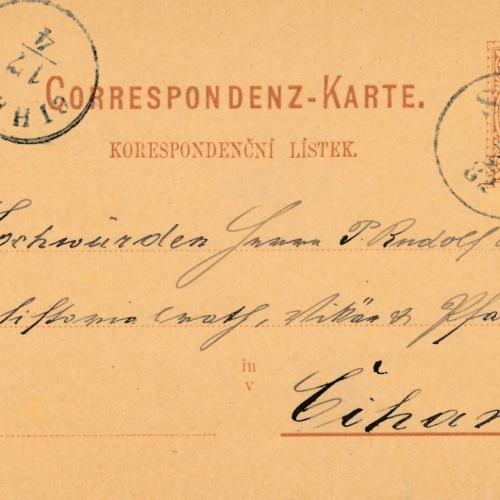 17
4
CORRESPONDENZ-KARTE.
KORESPONDENČNÍ LÍSTEK.
Hochwürden Herrn P. Rudolf
Vikär & Pfa
in
v
Čihan